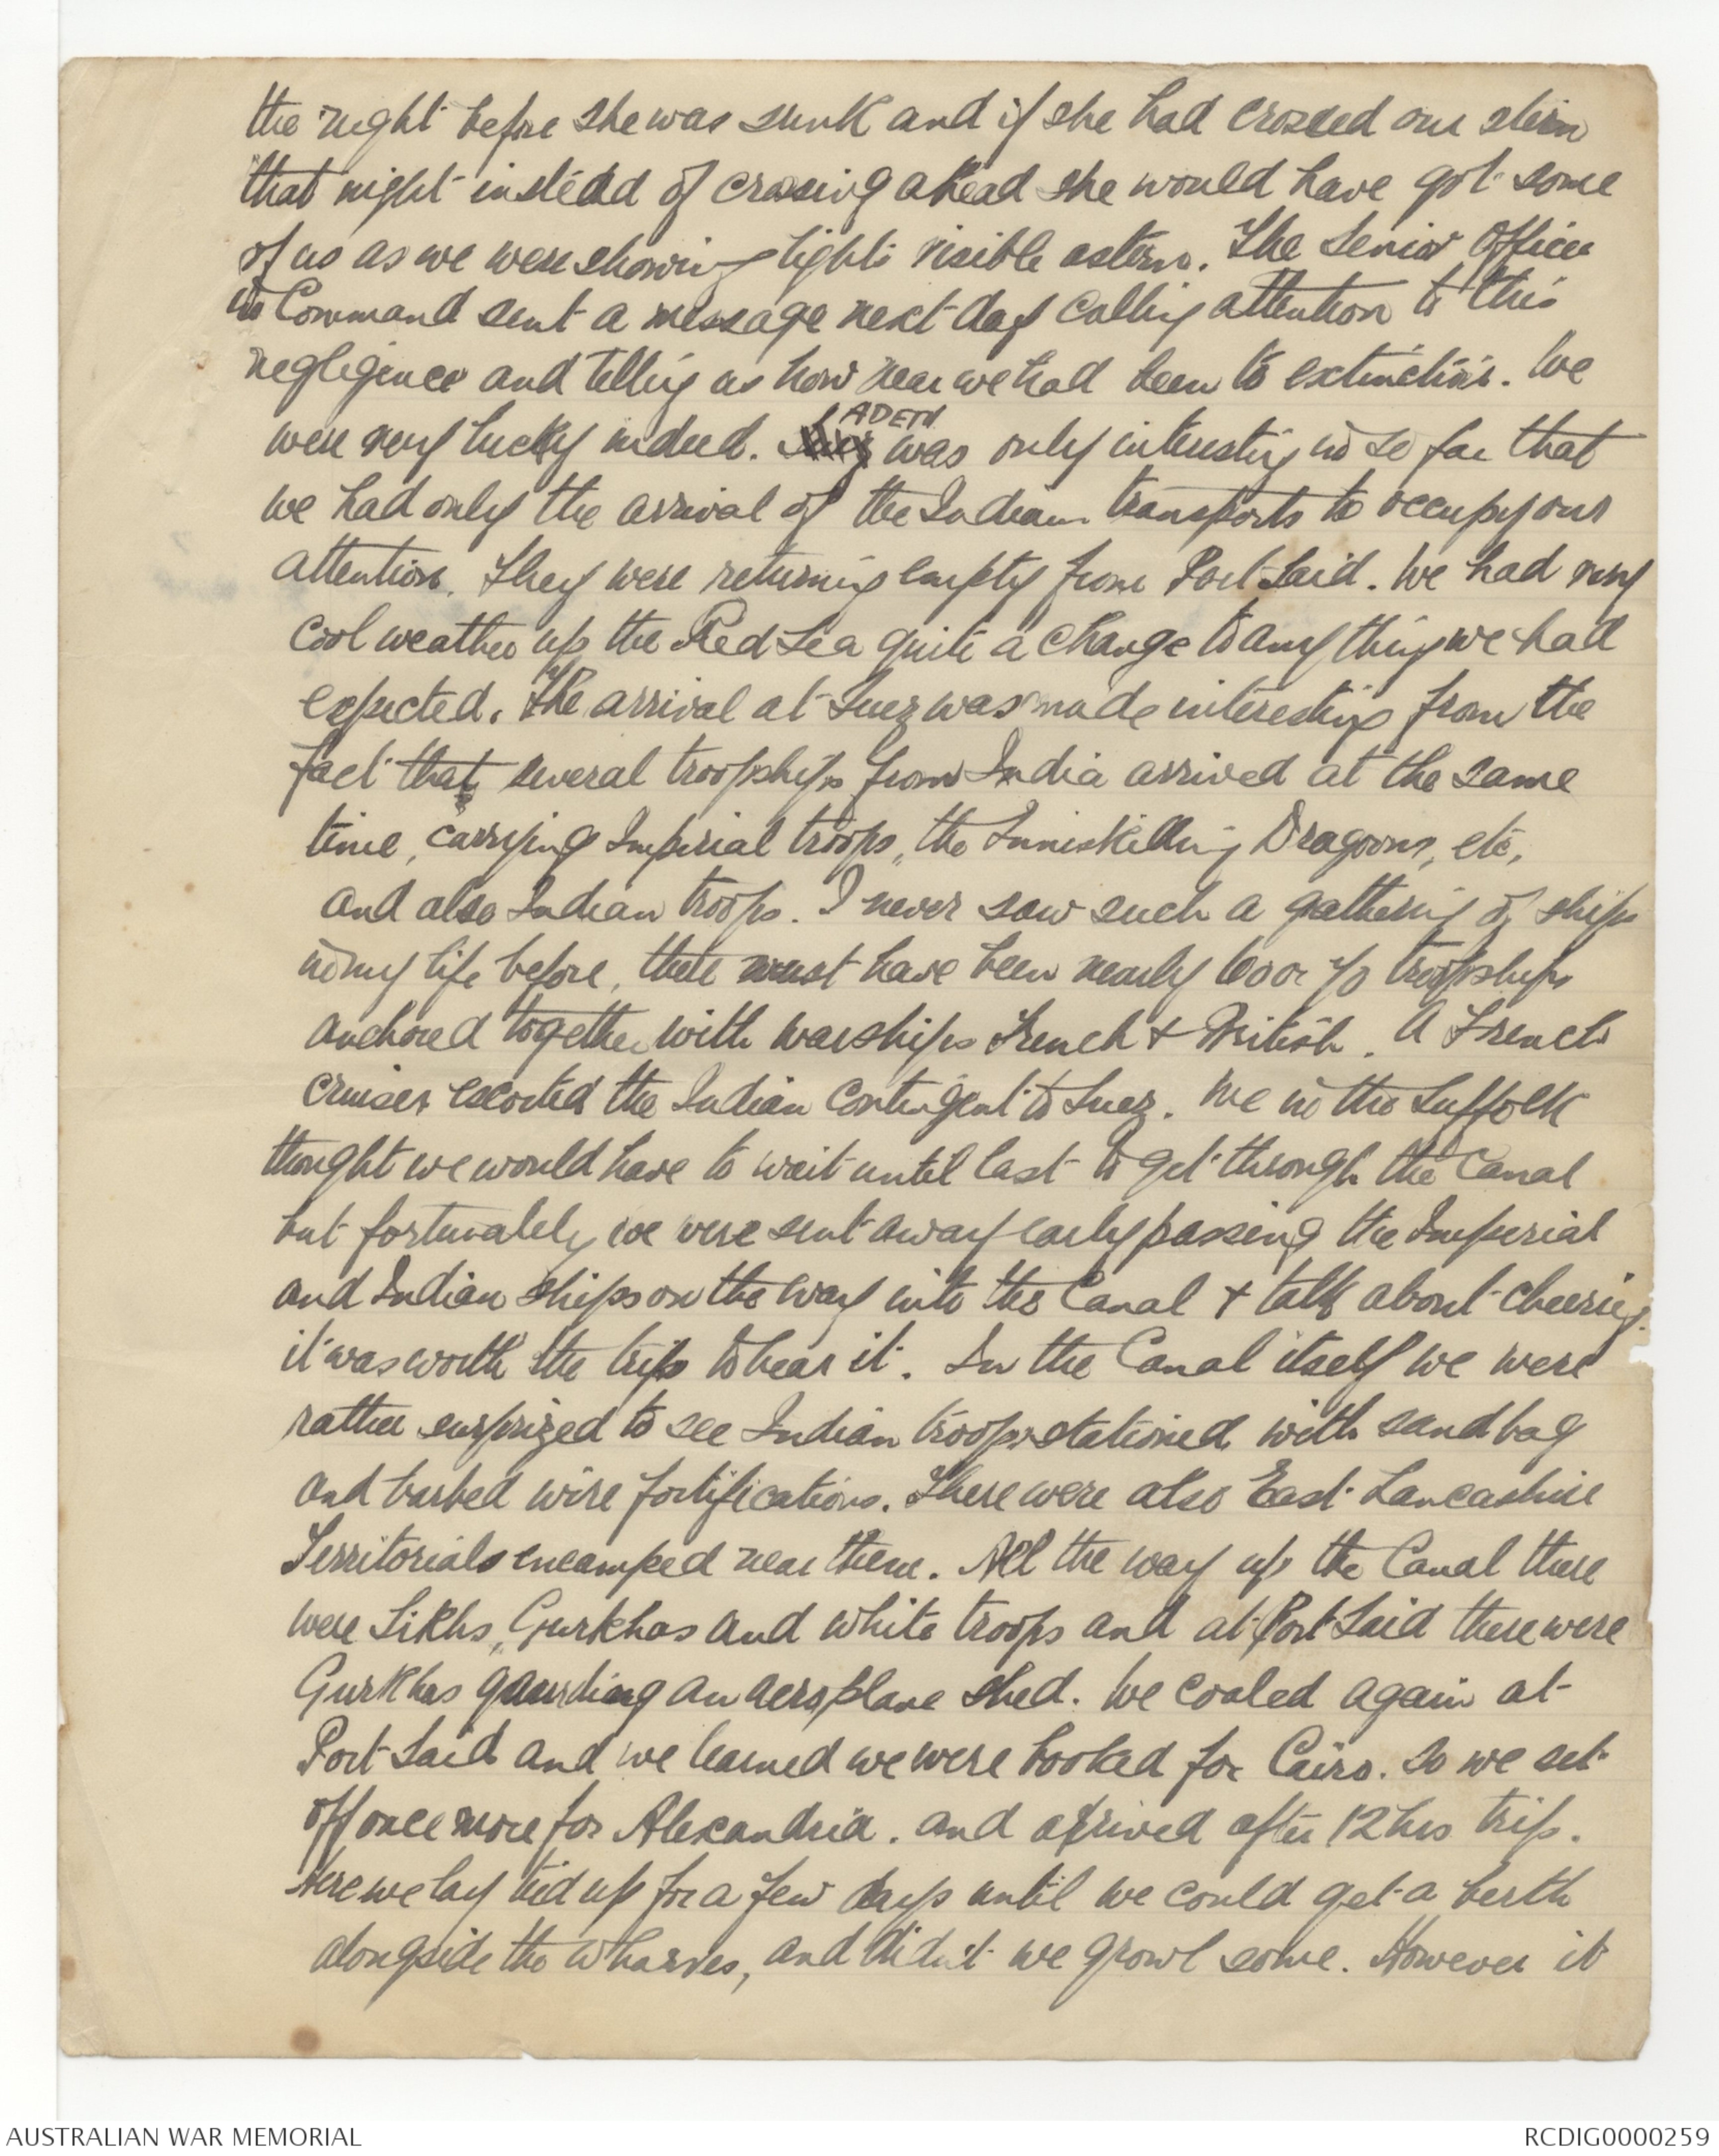 the night before she was sunk and if she had crossed our stern
that night instead of crossing ahead she would have got some
of us as we were showing lights visible astern. The Senior Officer
in Command sent a message next day calling attention to this
negligence and telling us how near we had been to extinction. We
were very lucky indeed. ADEN was only interesting in so far that
we had only the arrival of the Indian transports to occupy our
attention. They were returning empty from Port Said. We had very
cool weather up the Red Sea quite a change to anything we had
expected. The arrival at Suez was made interesting from the
fact that several troopships from India arrived at the same
time, carrying Imperial troops, the Inniskilling Dragoons, etc,
and also Indian troops. I never saw such a gathering of ships
in my life before, there must have been nearly 60 or 70 troopships
anchored together with warships French & British. A French
cruiser escorted the Indian Contingent to Suez. We in the Suffolk
thought we would have to wait until last to get through the Canal
but fortunately we were sent away early passing the Imperial
and Indian ships on the way into the Canal & talk about cheering
it was worth the trip to hear it. In the Canal itself we were
rather surprized to see Indian troops stationed with sandbag
and barbed wire fortifications. There were also East Lancashire
Territorials encamped near them. All the way up the Canal there
were Sikhs, Gurkhas and white troops and at Port Said there were
Gurkhas gaurding an aeroplane shed. We coaled again at
Port Said and we learned we were booked for Cairo. So we set
off once more for Alexandria. and arrived after 12 hrs trip.
Here we lay tied up for a few days until we could get a berth
alongside the wharves, and didn't we growl some. However it
AUSTRALIAN WAR MEMORIAL
RCDIG0000259